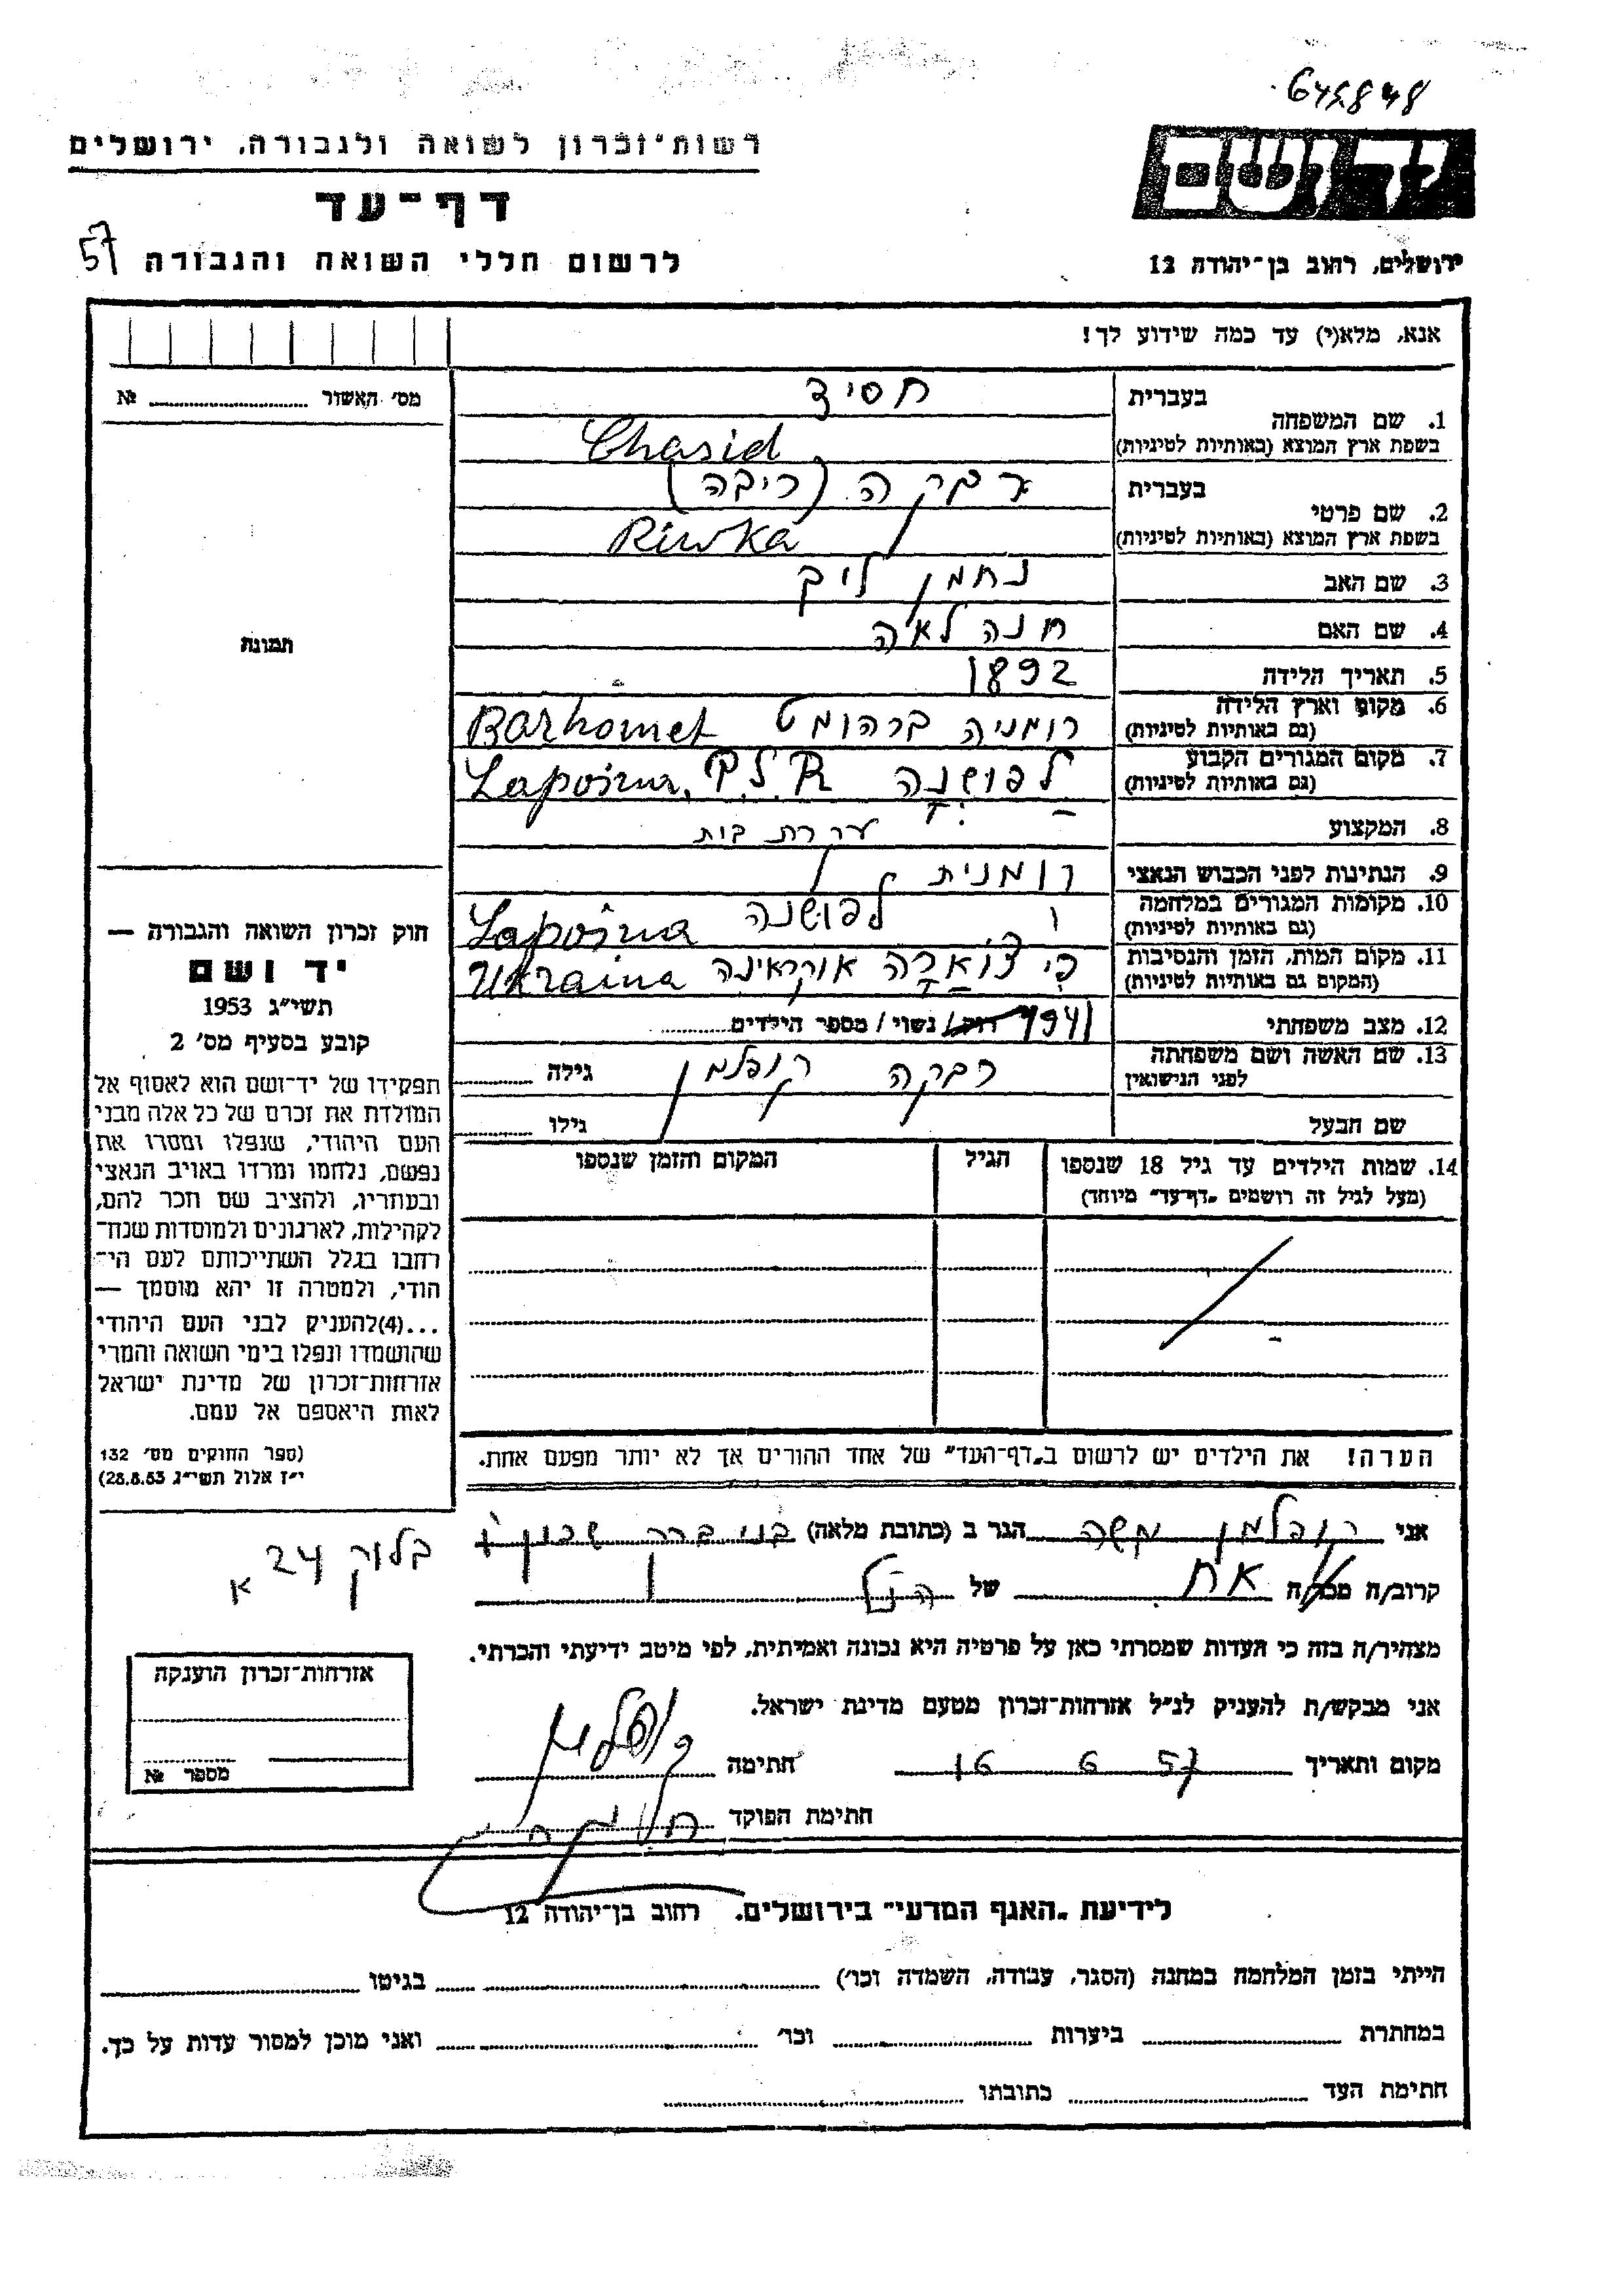 645848
יד ושם
ירושלים, רחוב בן־יהודה 12
רשות־זכרון לשואה ולגבורה, ירושלים
דף־עד
לרשום חללי השואה והגבורה 57
אנא, מלא(י) עד כמה שידוע לך!
מס׳ האשור №
תמונה
בעברית חסיד
1. שם המשפחה
בשפת ארץ המוצא (באותיות לטיניות) Chasid
בעברית רבקה (ריבה)
2. שם פרטי
בשפת ארץ המוצא (באותיות לטיניות) Riwka
3. שם האב נחמן ליב
4. שם האם חנה לאה
5. תאריך הלידה 1892
6. מקום וארץ הלידה רומניה ברהומט Barhomet
(גם באותיות לטיניות)
7. מקום המגורים הקבוע לפושנה
(גם באותיות לטיניות)
8. המקצוע עקרת בית
9. הנתינות לפני הכבוש הנאצי רומנית
10. מקומות המגורים במלחמה לפושנה Laposna
(גם באותיות לטיניות)
11. מקום המות, הזמן והנסיבות אוקראינה Ukraina
(המקום גם באותיות לטיניות)
12. מצב משפחתי 1941 רוק/ נשוי/ מספר הילדים
13. שם האשה ושם משפחתה רבקה קופלמן גילה
לפני הנישואין
שם הבעל גילו
14. שמות הילדים עד גיל 18 שנספו הגיל המקום והזמן שנספו
(מעל לגיל זה רושמים „דף־עד״ מיוחד)
הערה! את הילדים יש לרשום ב„דף־העד״ של אחד ההורים אך לא יותר מפעם אחת.
חוק זכרון השואה והגבורה —
יד ושם
תשי״ג 1953
קובע בסעיף מס׳ 2
תפקידו של יד־ושם הוא לאסוף אל
המולדת את זכרם של כל אלה מבני
העם היהודי, שנפלו ומסרו את
נפשם, נלחמו ומרדו באויב הנאצי
ובעוזריו, ולהציב שם וזכר להם,
לקהילות, לארגונים ולמוסדות שנח־
רבו בגלל השתייכותם לעם הי־
הודי, ולמטרה זו יהא מוסמך —
...(4)להעניק לבני העם היהודי
שהושמדו ונפלו בימי השואה והמרי
אזרחות־זכרון של מדינת ישראל
לאות היאספם אל עמם.
(ספר החוקים מס׳ 132
י״ז אלול תשי״ג 28.8.53)
אני קופלמן משה הגר ב (כתובת מלאה) בני ברק שכון ו
בלוק 24 א
קרוב/ה מכר/ה אח של הנ״ל
מצהיר/ה בזה כי העדות שמסרתי כאן על פרטיה היא נכונה ואמיתית, לפי מיטב ידיעתי והכרתי.
אני מבקש/ת להעניק לנ״ל אזרחות־זכרון מטעם מדינת ישראל.
מקום ותאריך 16 6 57 חתימה קופלמן
חתימת הפוקד
אזרחות־זכרון הוענקה
מספר №
לידיעת „האגף המדעי״ בירושלים. רחוב בן־יהודה 12
הייתי בזמן המלחמה במחנה (הסגר, עבודה, השמדה וכו׳) בגיטו
במחתרת ביערות וכו׳ ואני מוכן למסור עדות על כך.
חתימת העד כתובתו